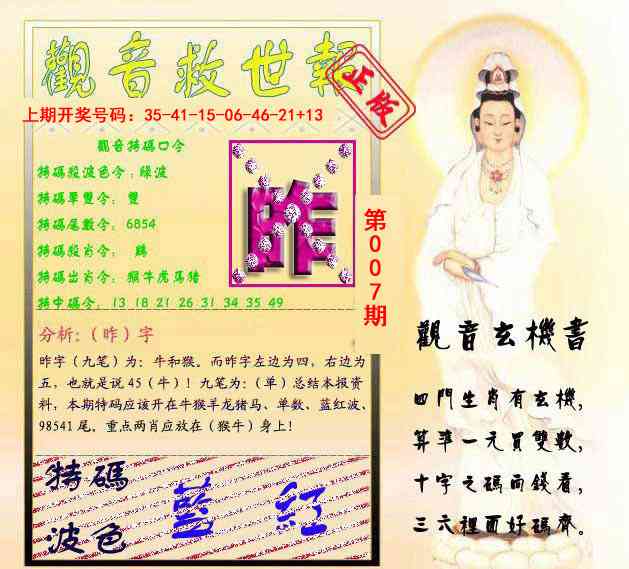 觀音救世報
正版
上期开奖号码：35-41-15-06-46-21+13
觀音特碼口令
特碼殺波色令：綠波
特碼單雙令：雙
特碼尾數令：6854
特碼殺肖令： 鷄
特碼出肖令：猴牛虎馬猪
特中碼令：13 18 21 26 31 34 35 49
昨
第007期
分析:（昨）字
昨字（九笔）为：牛和猴。而昨字左边为四，右边为
五，也就是说 45（牛）！九笔为：（单）总结本报资
料，本期特码应该开在牛猴羊龙猪马、单数、蓝红波、
98541 尾。重点两肖应放在（猴牛）身上！
特碼
波色
藍 紅
觀音玄機書
四門生肖有玄機，
算準一元買雙數，
十字之碼而錢看，
三六裡面好碼齊。